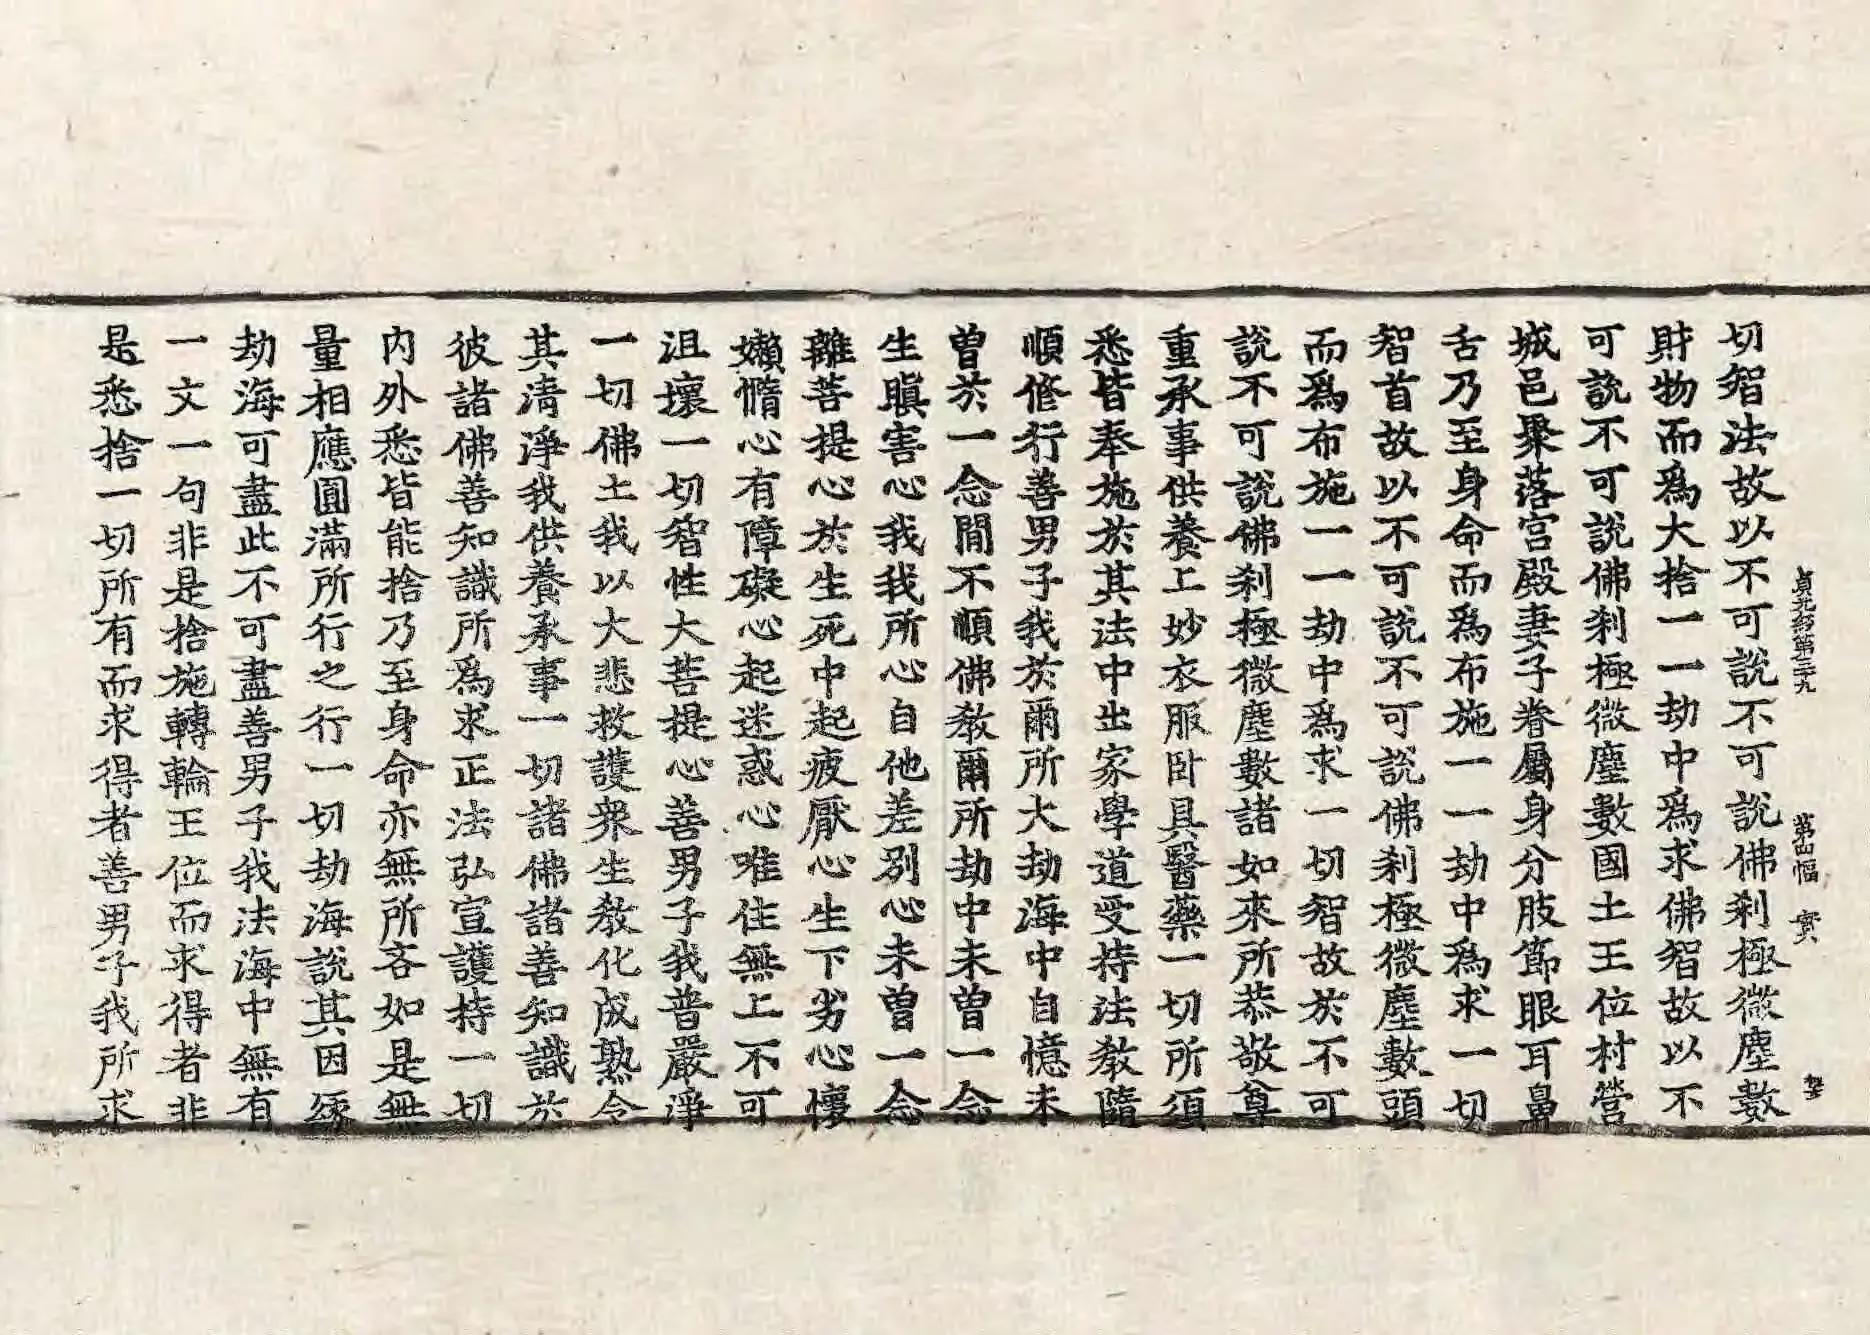 切智法故以不可說不可說佛剎極微塵數
財物而爲大捨一一劫中爲求佛智故以不
可說不可說佛剎極微塵數國土王位村營
城邑聚落宮殿妻子眷屬身分肢節眼耳鼻
舌乃至身命而爲布施一一劫中爲求一切
智首故以不可說不可說佛剎極微塵數頭
而爲布施一一劫中爲求一切智故於不可
說不可說佛剎極微塵數諸如來所恭敬尊
重承事供養上妙衣服卧具醫藥一切所須
悉皆奉施於其法中出家學道受持法教隨
順修行善男子我於爾所大劫海中自憶未
曾於一念間不順佛教爾所劫中未曾一念
生瞋害心我我所心自他差別心未曾一念
離菩提心於生死中起疲厭心生下劣心懷
嬾惰心有障礙心起迷惑心唯住無上不可
沮壞一切智性大菩提心善男子我普嚴淨
一切佛土我以大悲救護衆生教化成熟令
其清淨我供養承事一切諸佛諸善知識於
彼諸佛善知識所爲求正法弘宣護持一切
內外悉皆能捨乃至身命亦無所吝如是無
量相應圓滿所行之行一切劫海說其因緣
劫海可盡此不可盡善男子我法海中無有
一文一句非是捨施轉輪王位而求得者非
是悉捨一切所有而求得者善男子我所求